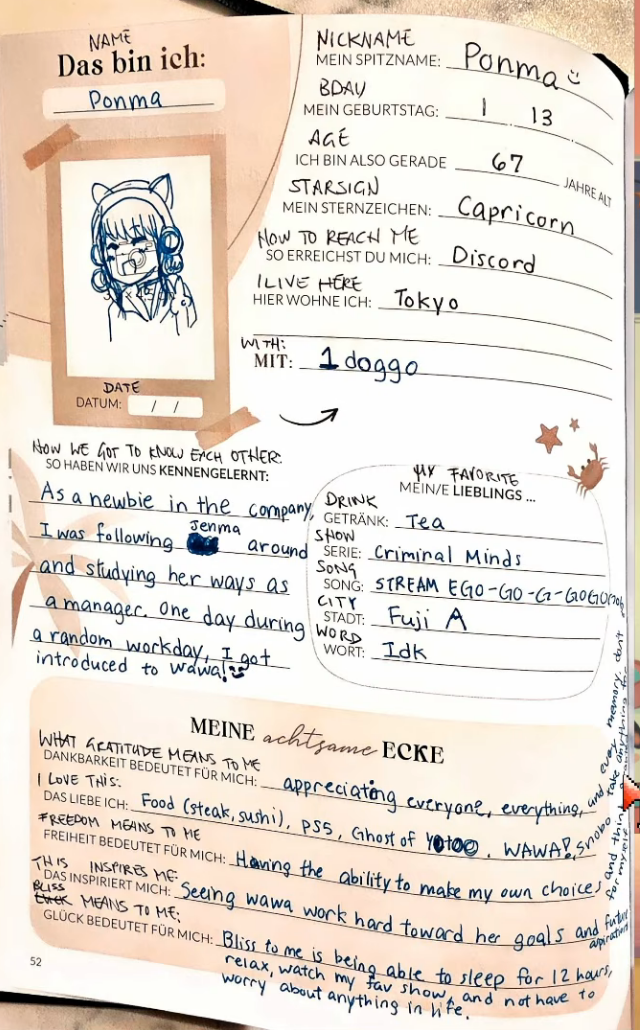 NAME
Das bin ich:
Ponma
NICKNAME
MEIN SPITZNAME: Ponma
BDAY
MEIN GEBURTSTAG: 1 . 13 .
AGE
ICH BIN ALSO GERADE 67 JAHRE ALT
STARSIGN
MEIN STERNZEICHEN: Capricorn
HOW TO REACH ME
SO ERREICHST DU MICH: Discord
I LIVE HERE
HIER WOHNE ICH: Tokyo
WITH:
MIT: 1 doggo
DATE
DATUM: / /
HOW WE GOT TO KNOW EACH OTHER:
SO HABEN WIR UNS KENNENGELERNT:
As a newbie in the company,
I was following Jenma around
and studying her ways as
a manager. One day during
a random workday, I got
introduced to wawa!
MY FAVORITE
MEIN/E LIEBLINGS ...
DRINK
GETRÄNK: Tea
SHOW
SERIE: Criminal Minds
SONG
SONG: STREAM EGO-GO-G-GOGO
CITY
STADT: Fuji A
WORD
WORT: Idk
MEINE achtsame ECKE
WHAT GRATITUDE MEANS TO ME
DANKBARKEIT BEDEUTET FÜR MICH: appreciating everyone, everything, and every memory. don't take anything for
I LOVE THIS:
DAS LIEBE ICH: Food (steak, sushi), PS5, Ghost of . WAWA!, snobo
FREEDOM MEANS TO ME
FREIHEIT BEDEUTET FÜR MICH: Having the ability to make my own choices and think for myself
THIS INSPIRES ME:
DAS INSPIRIERT MICH: Seeing wawa work hard toward her goals and future aspirations
BLISS MEANS TO ME:
GLÜCK BEDEUTET FÜR MICH: Bliss to me is being able to sleep for 12 hours,
relax, watch my fav show, and not have to
worry about anything in life.
52